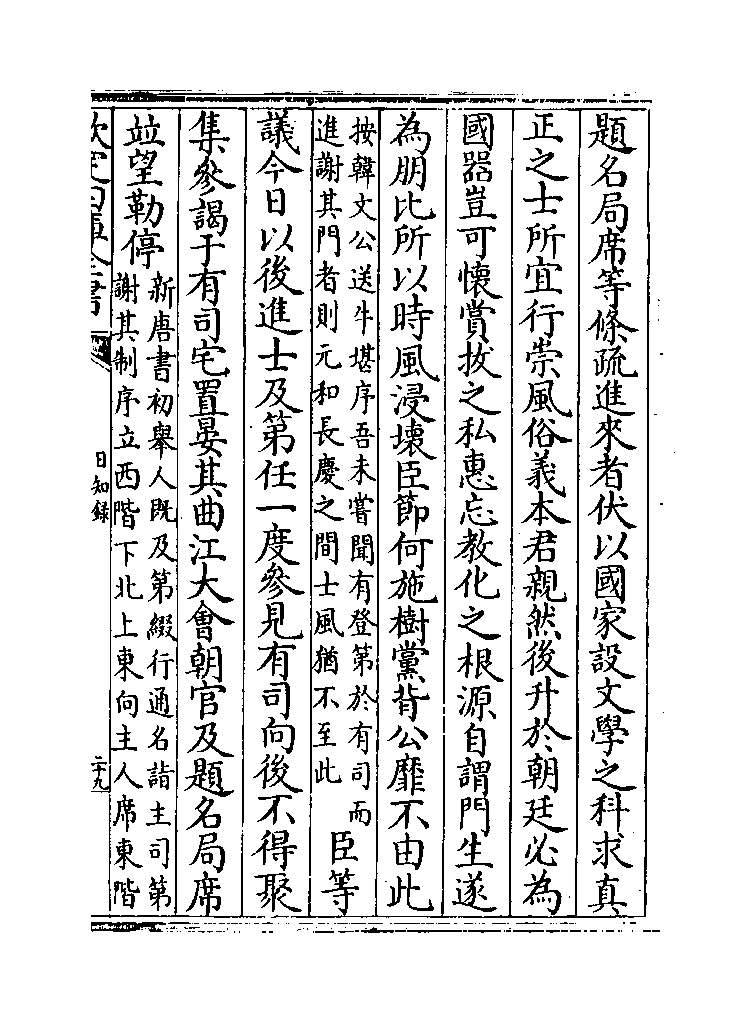 題名局席等條疏進來者伏以國家設文學之科求真
正之士所宜行崇風俗義本君親然後升於朝廷必為
國器豈可懷賞拔之私惠忘教化之根源自謂門生遂
為朋比所以時風浸壞臣節何施樹黨背公靡不由此
按韓文公送牛堪序吾未嘗聞有登第於有司而
進謝其門者則元和長慶之間士風猶不至此
臣等
議今日以後進士及第任一度參見有司向後不得聚
集參謁于有司宅置宴其曲江大會朝官及題名局席
並望勒停
新唐書初舉人既及第綴行通名詣主司第
謝其制序立西階下北上東向主人席東階
欽定四庫全書
日知錄
二十九